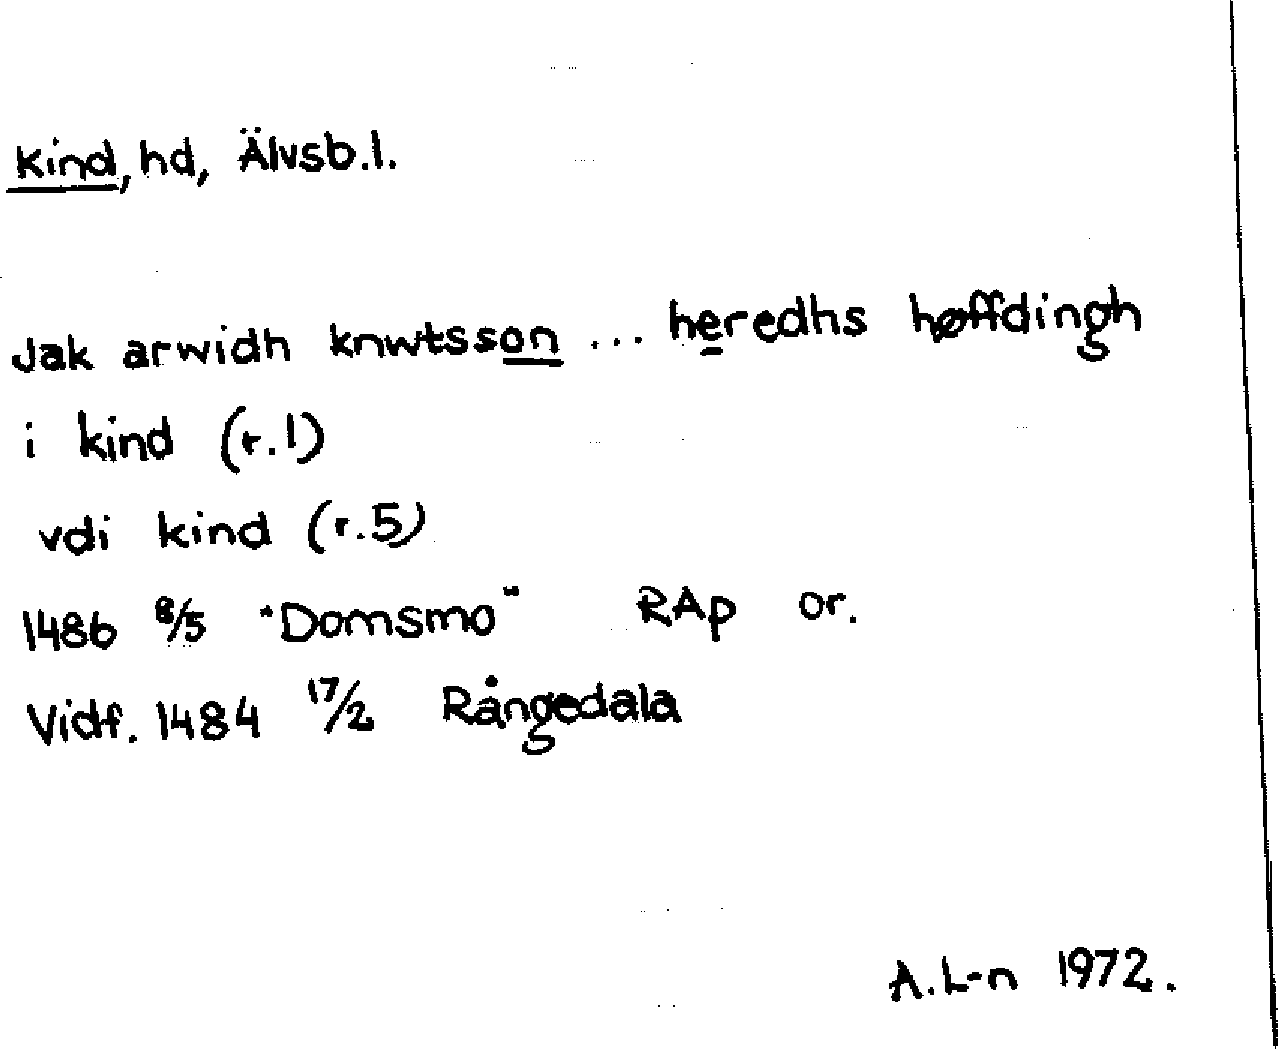 Kind, hd, Älvsb.l.
Jak arwidh knwtsson ... heredhs høffdingh
i kind (r.1)
vdi kind (r.5)
1486 8/5 "Domsmo" RAp or.
Vidf. 1484 17/2 Rångedala
A.L-n 1972.